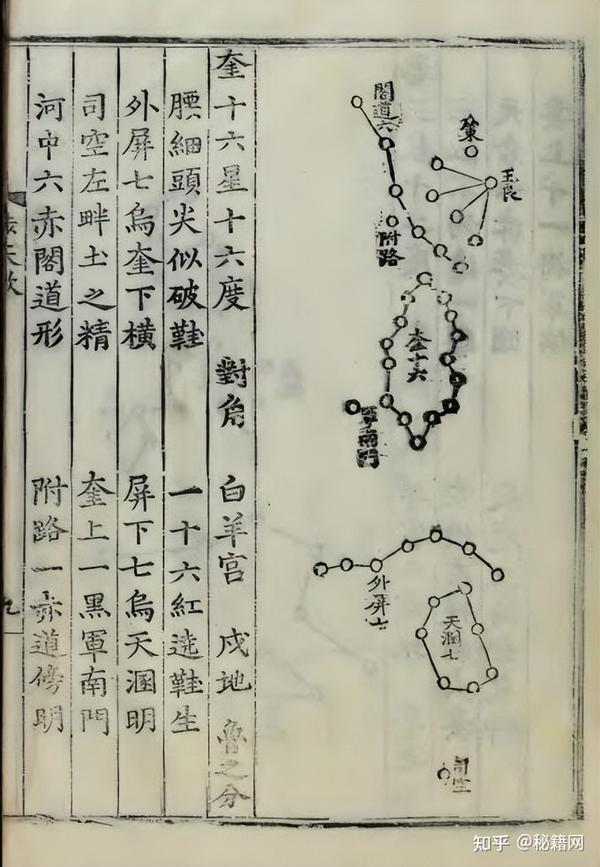 王良
策
閣道六
附路
奎十六
軍南門
外屏七
天溷七
司空
奎十六星十六度 對角 白羊宮 戌地 魯之分
腰細頭尖似破鞋 一十六紅遶鞋生
外屏七烏奎下橫 屏下七烏天溷明
司空左畔土之精 奎上一黑軍南門
河中六赤閣道形 附路一赤道傍明
步天歌
九
知乎 @秘籍网